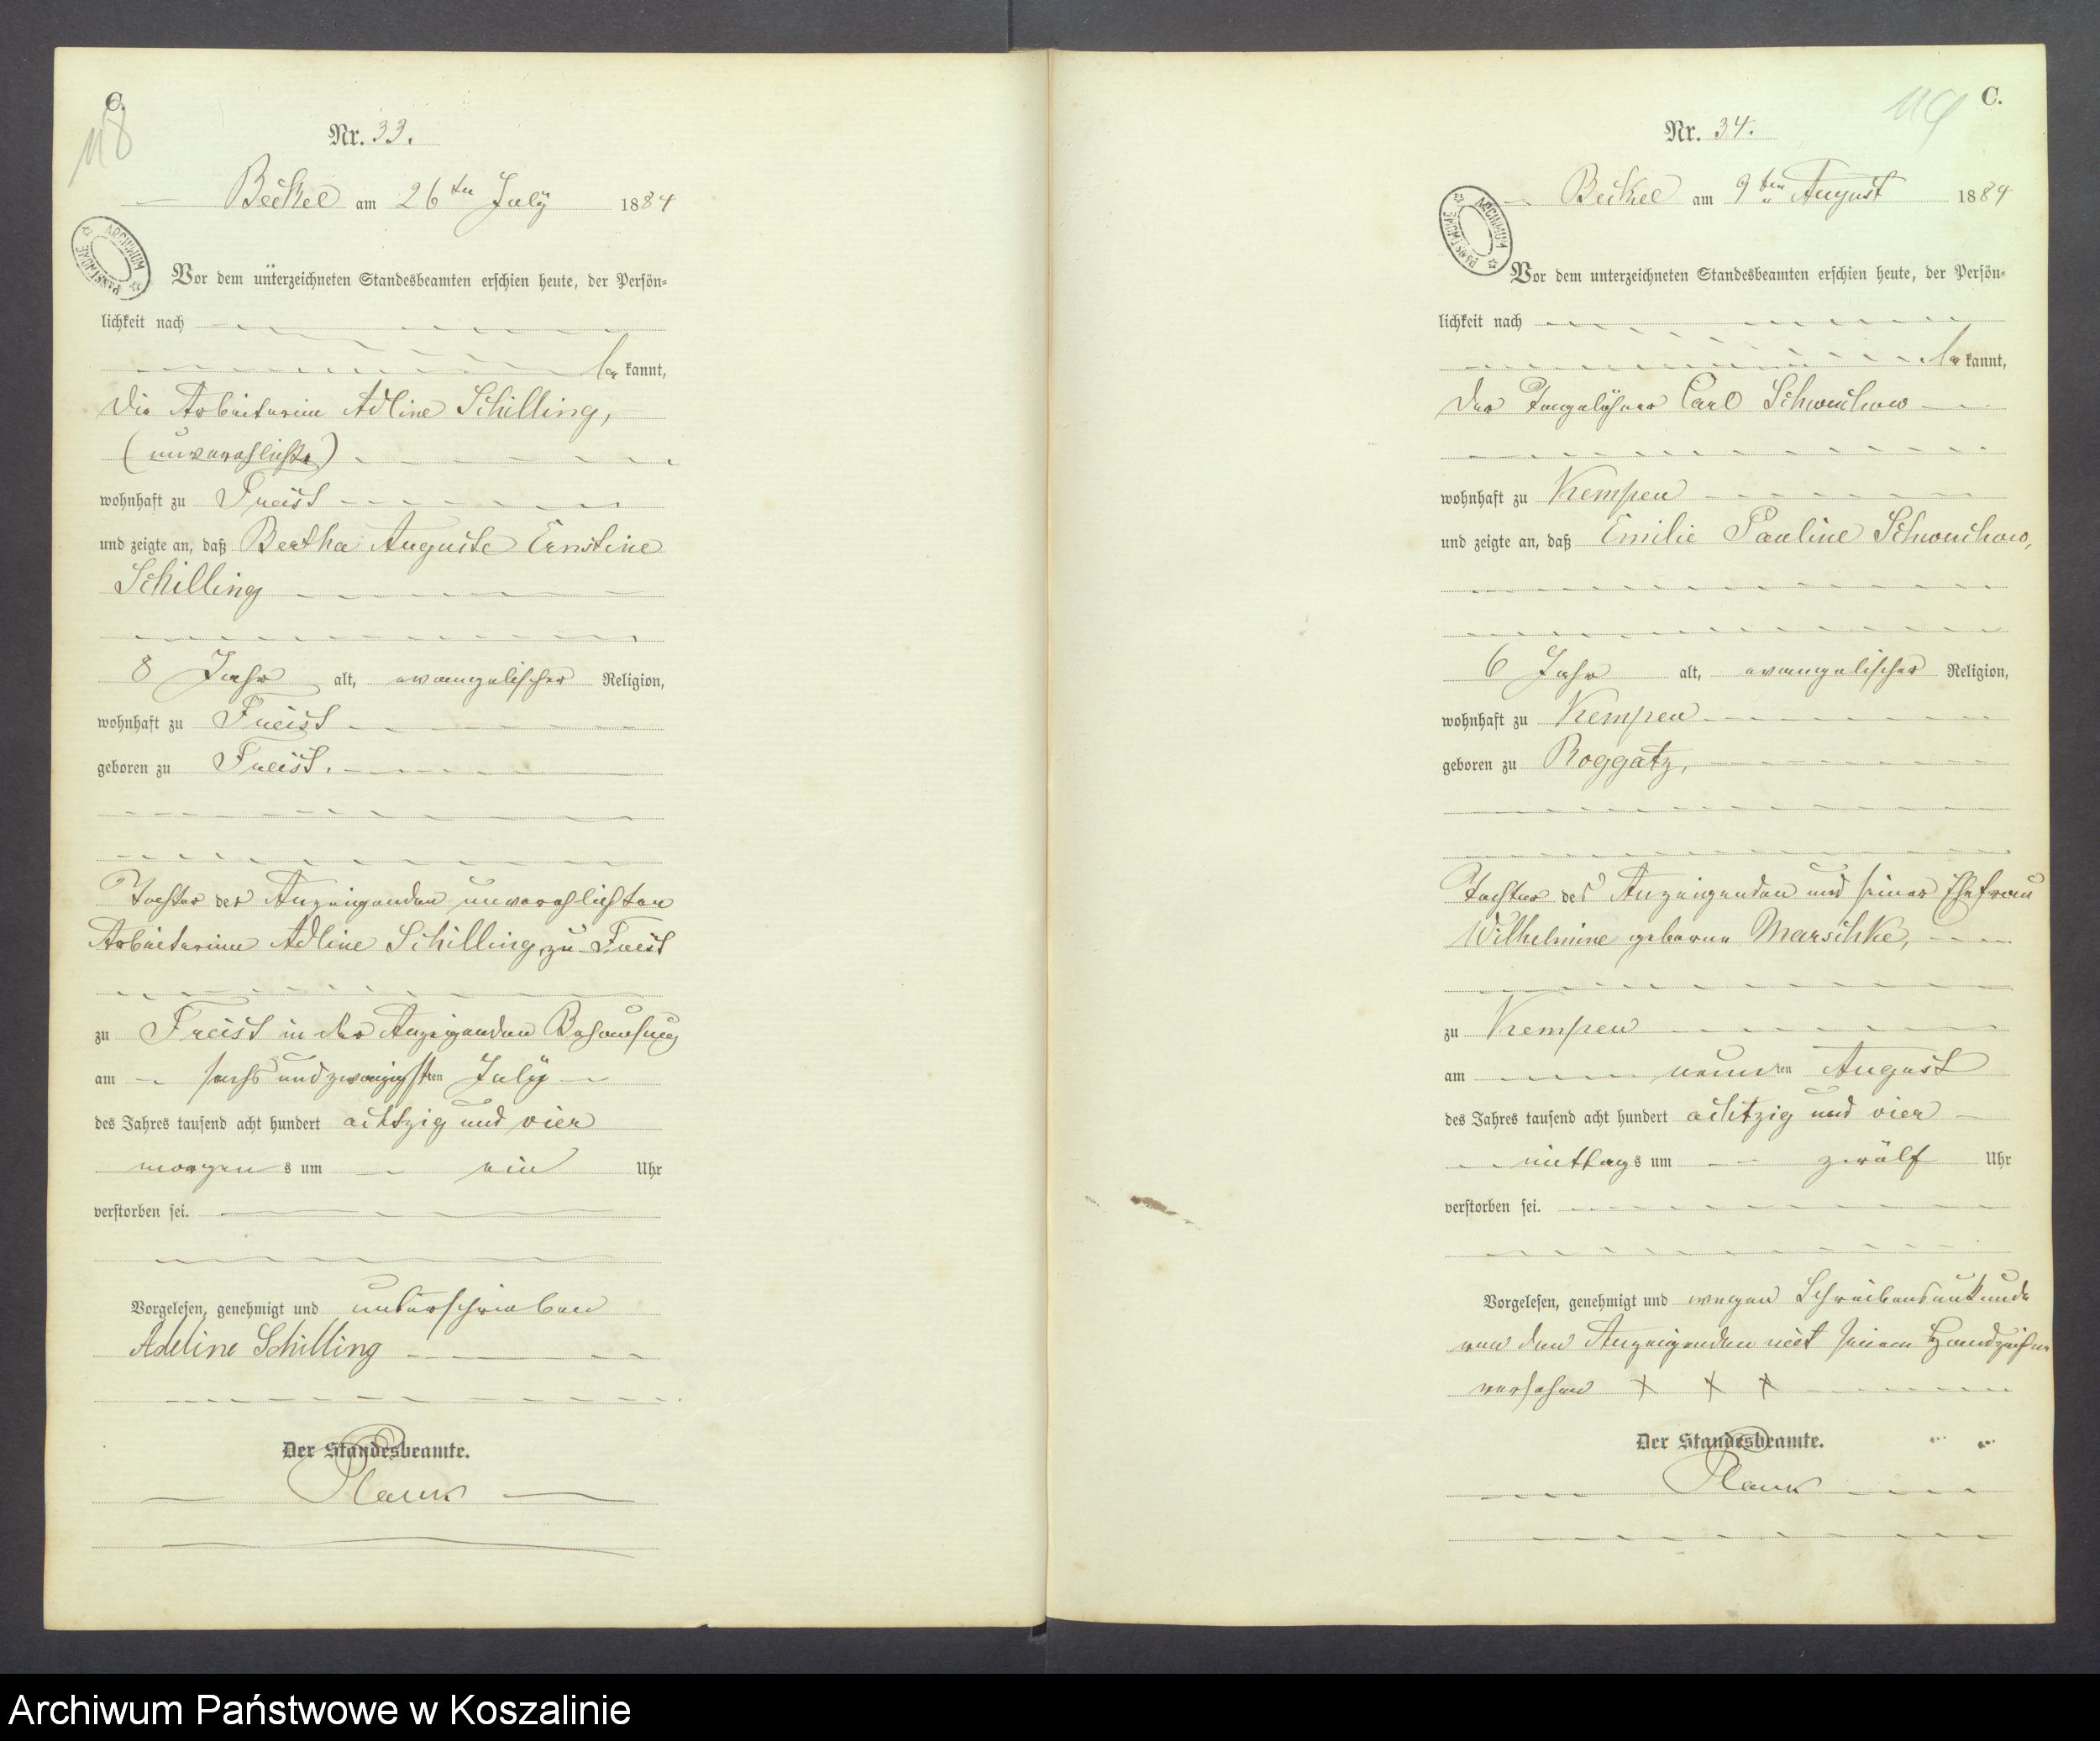 C.
118
Nr. 33.
Beckel am 26ten July 1884
ARCHIWUM PAŃSTWOWE
Vor dem unterzeichneten Standesbeamten erschien heute, der Persön-
lichkeit nach
be kannt,
die Arbeiterin Adline Schilling,
(unverehlichte)
wohnhaft zu Freist
und zeigte an, daß Bertha Auguste Ernstine
Schilling
8 Jahr alt, evangelischer Religion,
wohnhaft zu Freist
geboren zu Freist.
Tochter der Anzeigenden unverehlichten
Arbeiterinn Adline Schilling zu Freist
zu Freist in der Anzeigenden Behausung
am sechs und zwanzigsten July
des Jahres tausend acht hundert achtzig und vier
morgens um ein Uhr
verstorben sei.
Vorgelesen, genehmigt und unterschrieben
Adeline Schilling
Der Standesbeamte.
C.
119
Nr. 34.
Beckel am 9ten August 1884
ARCHIWUM PAŃSTWOWE
Vor dem unterzeichneten Standesbeamten erschien heute, der Persön-
lichkeit nach
be kannt,
der Tagelöhner Carl Schwuchow
wohnhaft zu Kempen
und zeigte an, daß Emilie Pauline Schwuchow,
6 Jahr alt, evangelischer Religion,
wohnhaft zu Kempen
geboren zu Roggatz,
Tochter des Anzeigenden und seiner Ehefrau
Wilhelmine geborne Marschke,
zu Kempen
am neunten August
des Jahres tausend acht hundert achtzig und vier
mittags um zwölf Uhr
verstorben sei.
Vorgelesen, genehmigt und wegen Schreibensunkunde
von dem Anzeigenden mit seinem Handzeichen
versehen + + +
Der Standesbeamte.
Archiwum Państwowe w Koszalinie